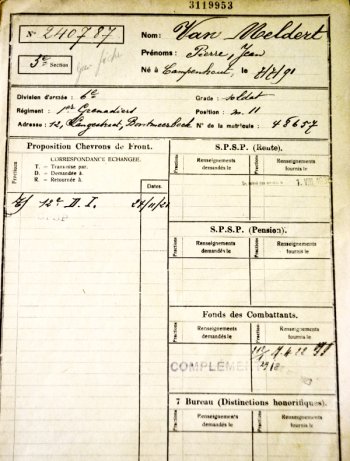 3119953
N° 240787
Nom: Van Meldert
5e Section
Prénoms: Pierre, Jean
Né à Campenhout, le
Division d'armée : 6e
Grade : soldat
Régiment : 1er Grenadiers
Position : m 11
Adresse : 12,
N° de la matricule : 48657
Proposition Chevrons de Front.
Fractions
CORRESPONDANCE ÉCHANGÉE.
T. — Transmise par.
D. — Demandée à.
R. — Retournée à.
Dates
12e D. I. 24/11/21
S.P.S.P. (Rente).
Fractions
Renseignements demandés le
Fractions
Renseignements fournis le
S.P.S.P. (Pension).
Fractions
Renseignements demandés le
Fractions
Renseignements fournis le
Fonds des Combattants.
Fractions
Renseignements demandés le
Fractions
Renseignements fournis le
COMPLEMEN
7 Bureau (Distinctions honorifiques).
Fractions
Renseignements demandés le
Fractions
Renseignements fournis le